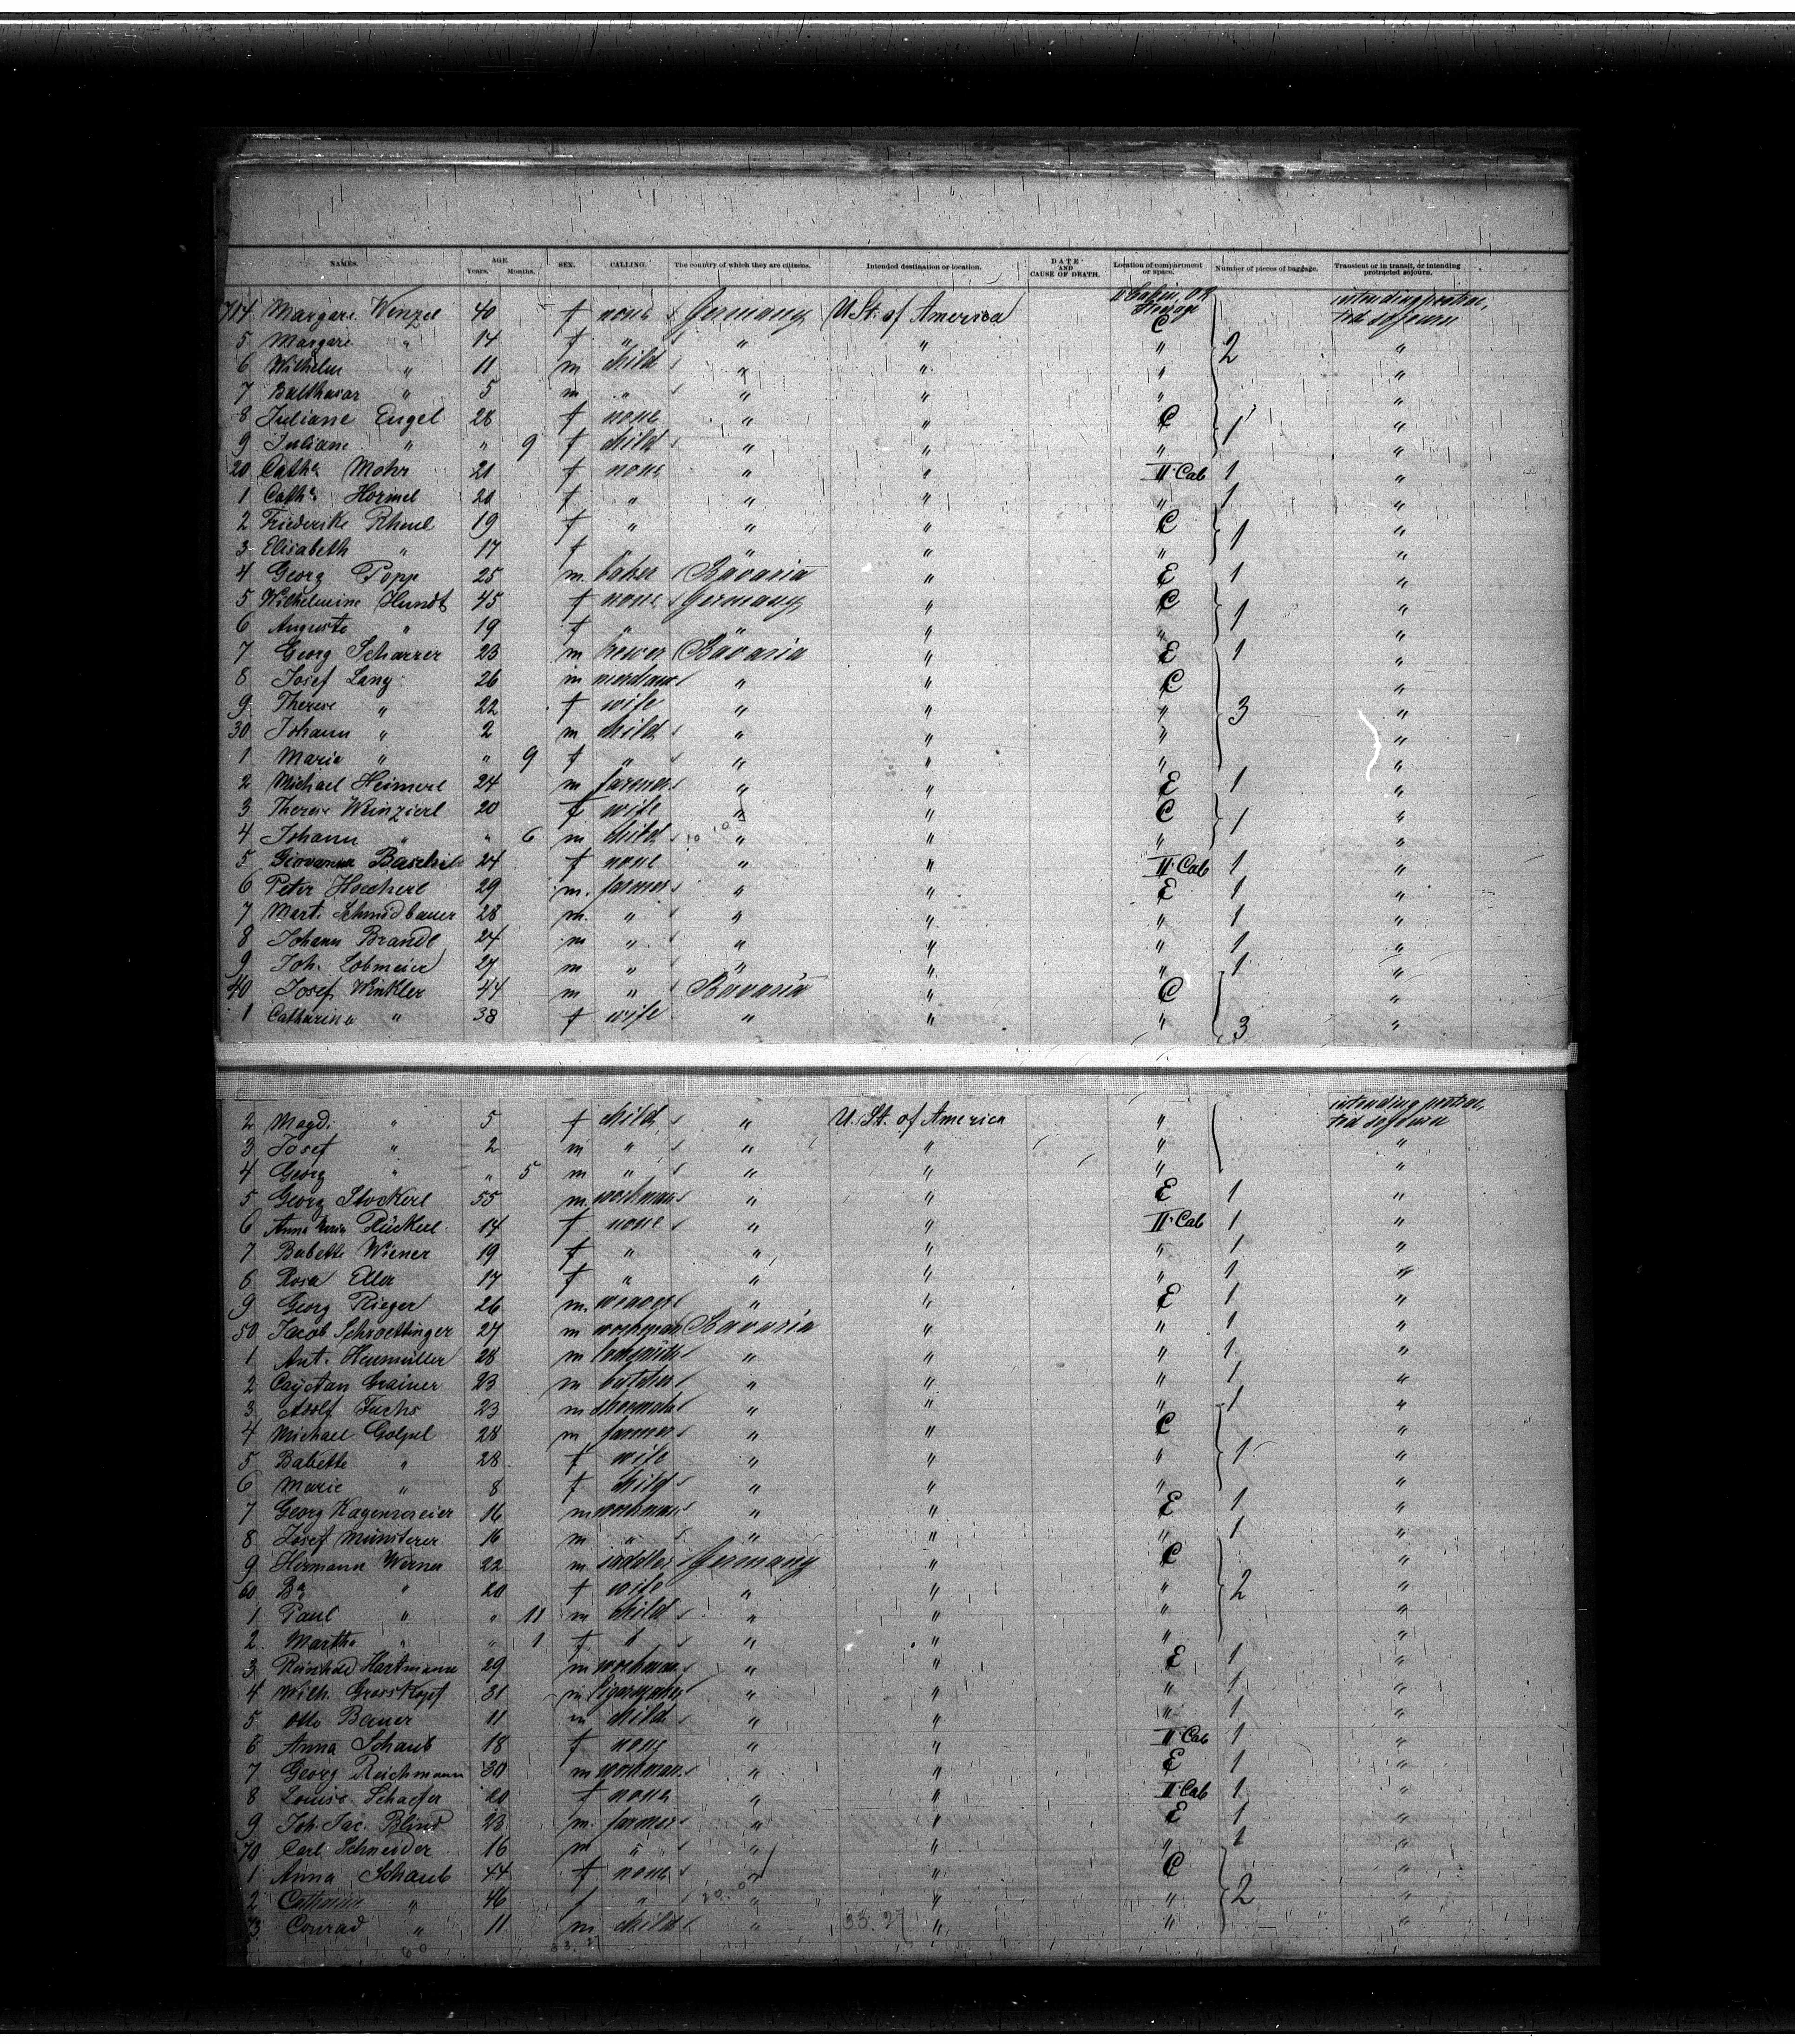 NAMES. AGE. Years. Months. SEX. CALLING. The country of which they are citizens. Intended destination or location. DATE AND CAUSE OF DEATH. Location of compartment or space. Number of pieces of baggage. Transient or in transit, or intending protracted sojourn.
714 Margare. Wenzel 40 f none Germany U. St. of America II Cabin, OR Steerage C intending protracted sojourn
5 Margare " 14 f " " " " 2 "
6 Wilhelm " 11 m child " " " "
7 Balthasar " 5 m " " " " "
8 Juliane Engel 28 f none " " C 1 "
9 Juliane " " 9 f child " " " "
20 Cath. Mohr 21 f none " " II Cab 1 "
1 Cath. Hormel 20 f " " " " 1 "
2 Friederike Rheul 19 f " " " C 1 "
3 Elisabeth " 17 f " " " " "
4 Georg Popp 25 m baker Bavaria " E 1 "
5 Wilhelmine Hundt 45 f none Germany " C 1 "
6 Auguste " 19 f " " " " "
7 Georg Scharrer 23 m brewer Bavaria " E 1 "
8 Josef Lang 26 m " " C "
9 Therese " 22 f wife " " " 3 "
30 Johann " 2 m child " " " "
1 Marie " " 9 f " " " " "
2 Michael Heimerl 24 m farmer " " E 1 "
3 Therese Weinzierl 20 f wife " " C 1 "
4 Johann " " 6 m child " " " "
5 Giovanna 24 f none " " II Cab 1 "
6 Peter Hoecherl 29 m. farmer " " E 1 "
7 Mart. Schmidbauer 28 m. " " " " 1 "
8 Johann Brandl 24 m " " " " 1 "
9 Joh. Lobmeier 27 m " " " " 1 "
40 Josef Winkler 44 m " Bavaria " C "
1 Catharina " 38 f wife " " " 3 "
2 Magd. " 5 f child " U. St. of America " intending protracted sojourn
3 Josef " 2 m " " " " "
4 Georg " " 5 m " " " " "
5 Georg Stockerl 55 m. workman " " E 1 "
6 Anna Maria Rückerl 14 f none " " II Cab 1 "
7 Babette Wiener 19 f " " " " 1 "
8 Rosa Eller 17 f " " " " 1 "
9 Georg Rieger 26 m. weaver " " E 1 "
50 Jacob Schroettinger 27 m workman Bavaria " " 1 "
1 Ant. Heumüller 28 m " " " 1 "
2 Cajetan Grainer 23 m butcher " " " 1 "
3 Adolf Fuchs 23 m " " " 1 "
4 Michael Golpel 28 m farmer " " C 1 "
5 Babette " 28 f wife " " " "
6 Marie " 8 f child " " " "
7 Georg Kagermeier 16 m workman " " E 1 "
8 Josef Münsterer 16 m " " " " 1 "
9 Hermann Werner 22 m saddler Germany " C "
60 Ba " 20 f wife " " " 2 "
1 Paul " " 11 m child " " " "
2 Martha " " 1 f " " " " "
3 Reinhold Hartmann 29 m workman " " E 1 "
4 Wilh. Grosskopf 31 m " " " 1 "
5 Otto Bauer 11 m child " " " 1 "
6 Anna Schaub 18 f none " " II Cab 1 "
7 Georg Reichmann 30 m workman " " E 1 "
8 Louise Schaefer 20 f none " " II Cab 1 "
9 Joh. Jac. Blind 23 m. farmer " " E 1 "
70 Carl Schneider 16 m " " " " 1 "
1 Anna Schaub 44 f none " " C "
2 Catharine " 46 f " " " " 2 "
73 Conrad " 11 m child " 33.27 " " "
60 33.27